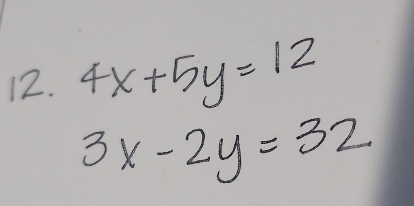 12. 4x+5y=12
3x-2y=32